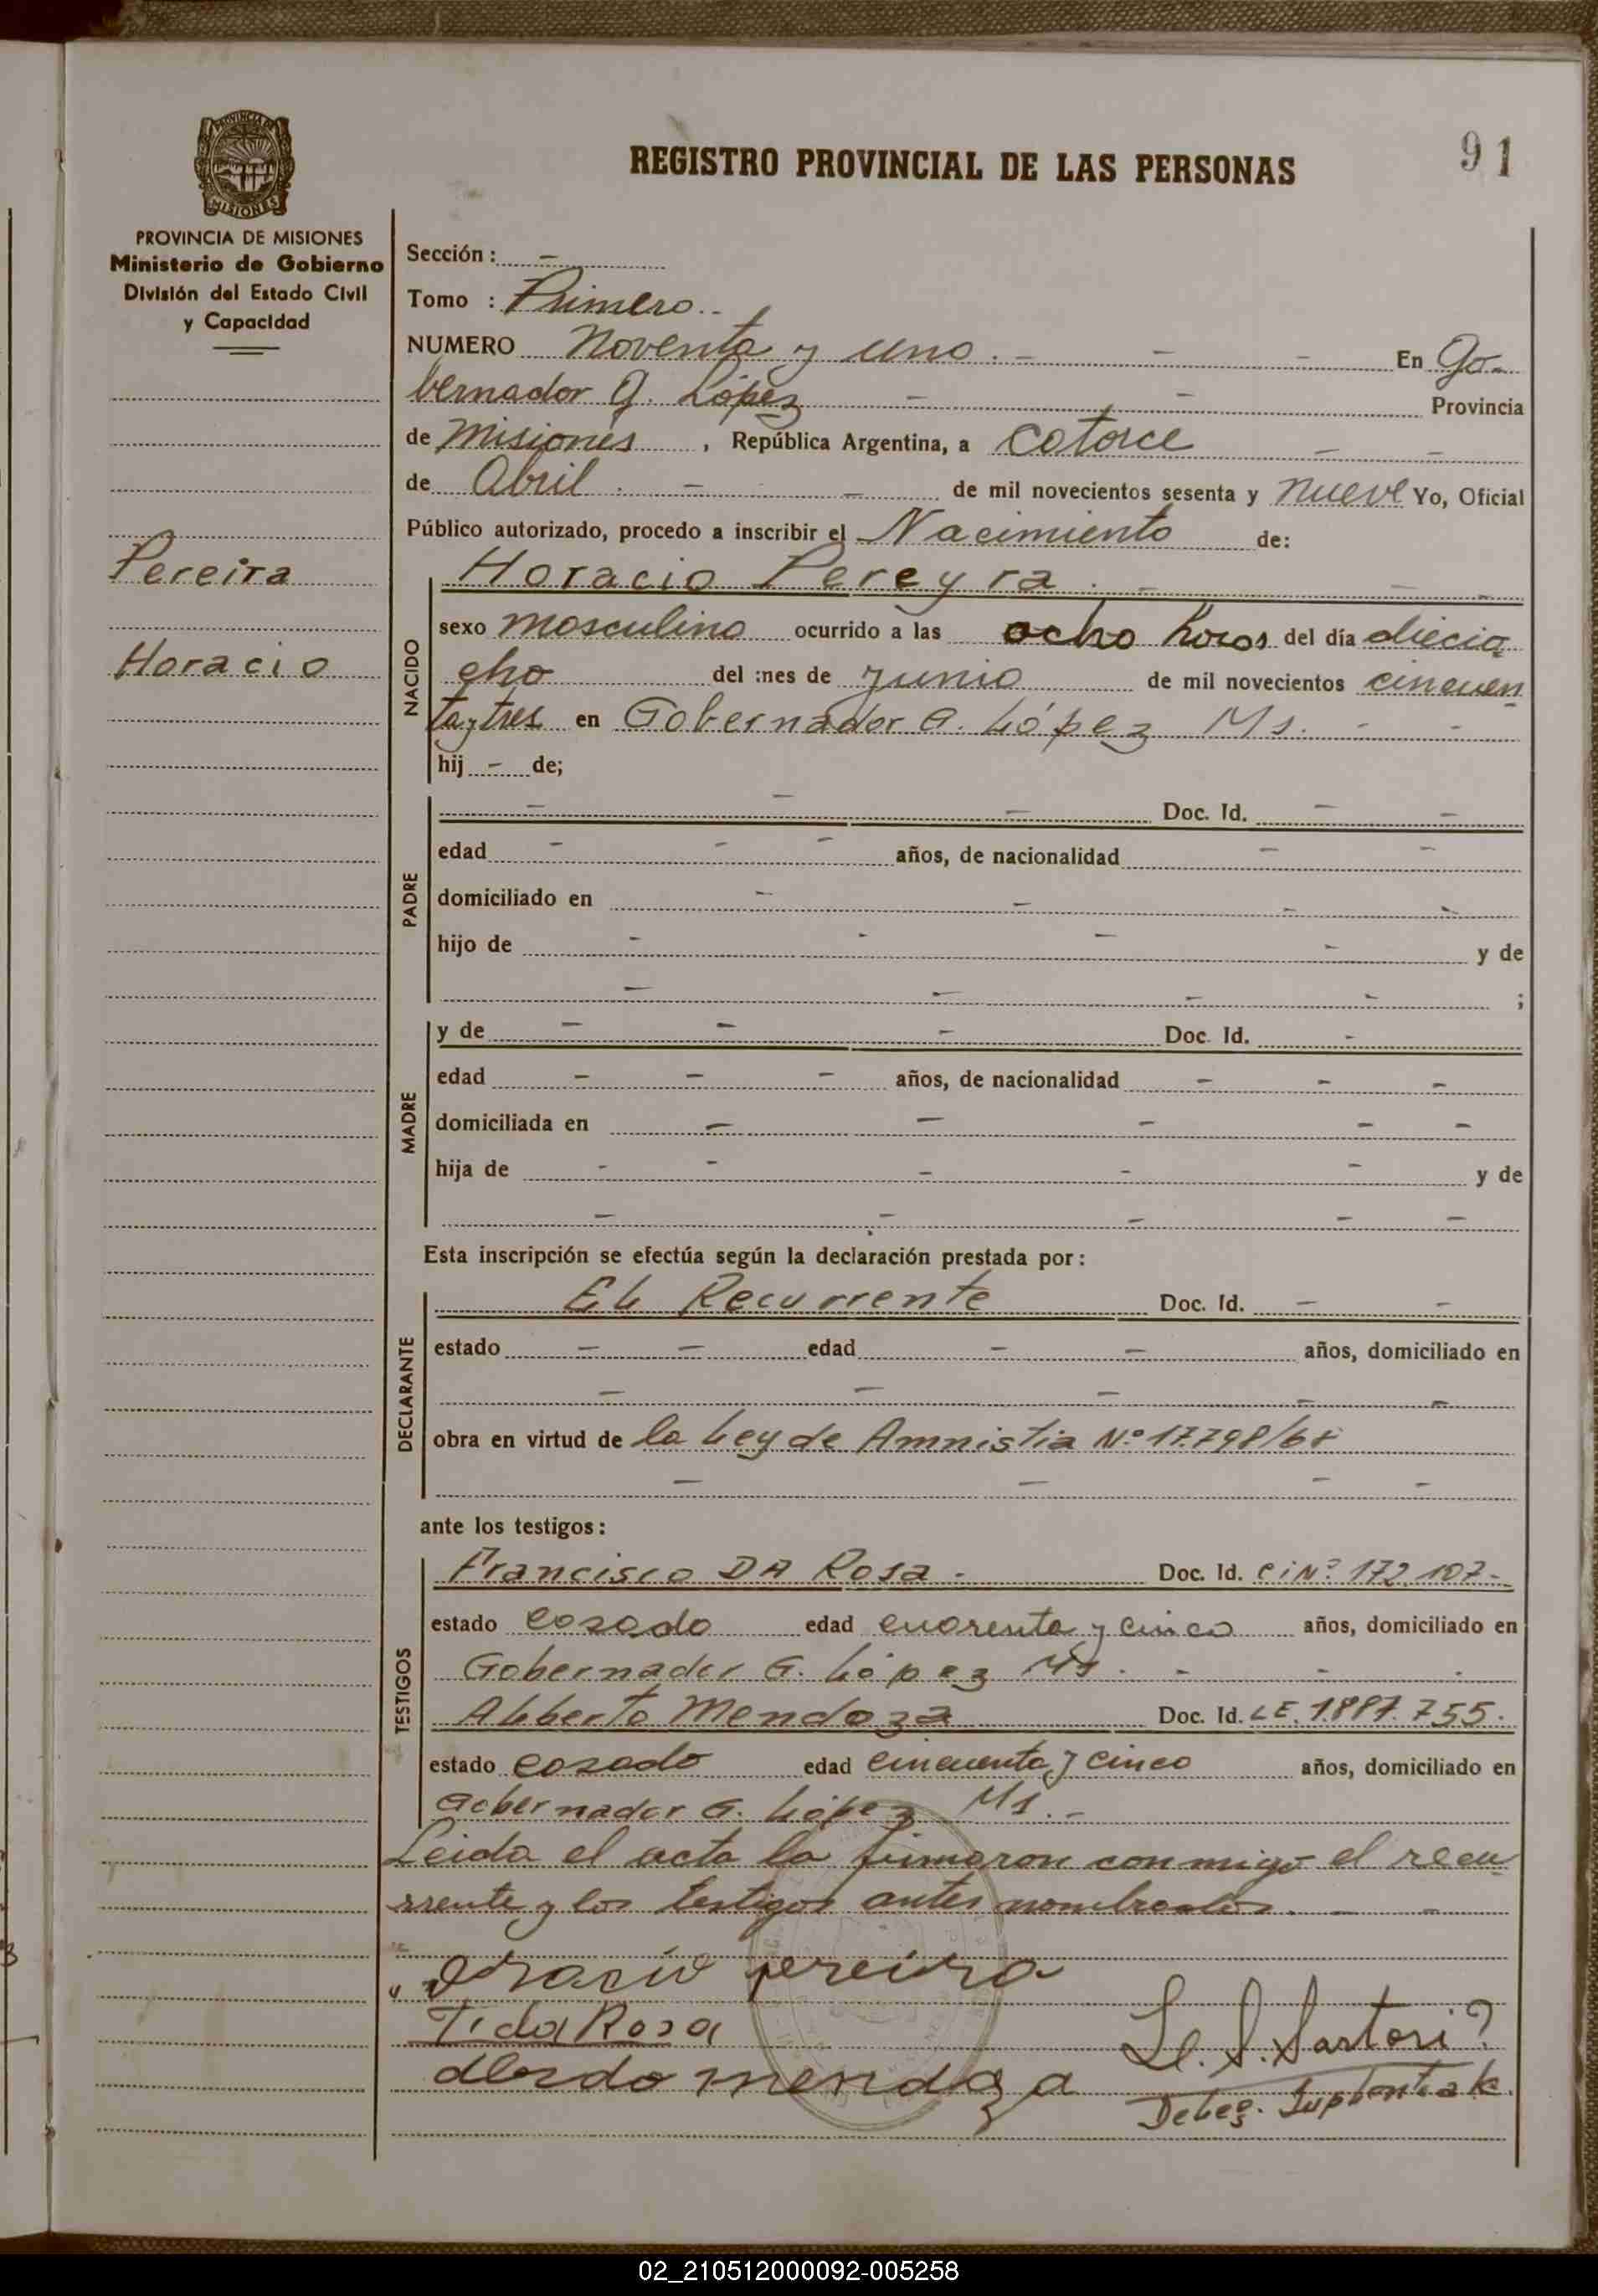 91
REGISTRO PROVINCIAL DE LAS PERSONAS
PROVINCIA DE MISIONES
MISIONES
PROVINCIA DE MISIONES
Ministerio de Gobierno
División del Estado Civil
y Capacidad
Pereira
Horacio
Sección : -
Tomo : Primero.-
NUMERO Noventa y uno.- - - En Go-
bernador G. López - - Provincia
de Misiones , República Argentina, a catorce - -
de Abril. - - de mil novecientos sesenta y nueve Yo, Oficial
Público autorizado, procedo a inscribir el Nacimiento de:
NACIDO
Horacio Pereyra. - - -
sexo masculino ocurrido a las ocho horas del día diecio
cho del mes de junio de mil novecientos cincuen
ta y tres en Gobernador G. López Ms. - -
hij - de;
PADRE
- - - Doc. Id. - -
edad - - - años, de nacionalidad - -
domiciliado en - - - -
hijo de - - - - y de
- - - - ;
MADRE
y de - - - Doc. Id. -
edad - - - años, de nacionalidad - - -
domiciliada en - - - - -
hija de - - - - - y de
- - - - -
Esta inscripción se efectúa según la declaración prestada por:
DECLARANTE
EL Recurrente Doc. Id. - -
estado - - edad - - años, domiciliado en
- - - - -
obra en virtud de la Ley de Amnistia Nº 17.798/68
- - - -
ante los testigos:
TESTIGOS
Francisco DA Rosa - Doc. Id. CiNº 172.107-
estado casado edad cuarenta y cinco años, domiciliado en
Gobernador G. López Ms. - - -
ALberto Mendoza Doc. Id. LE. 1.887.755.
estado casado edad cincuenta y cinco años, domiciliado en
Gobernador G. López Ms.-
Leida el acta la firmaron conmigo el recu-
rrente y los testigos antes nombrados. - -
oracio pereira
da Rosa
mendoza
Sartori
Deleg.
02_210512000092-005258